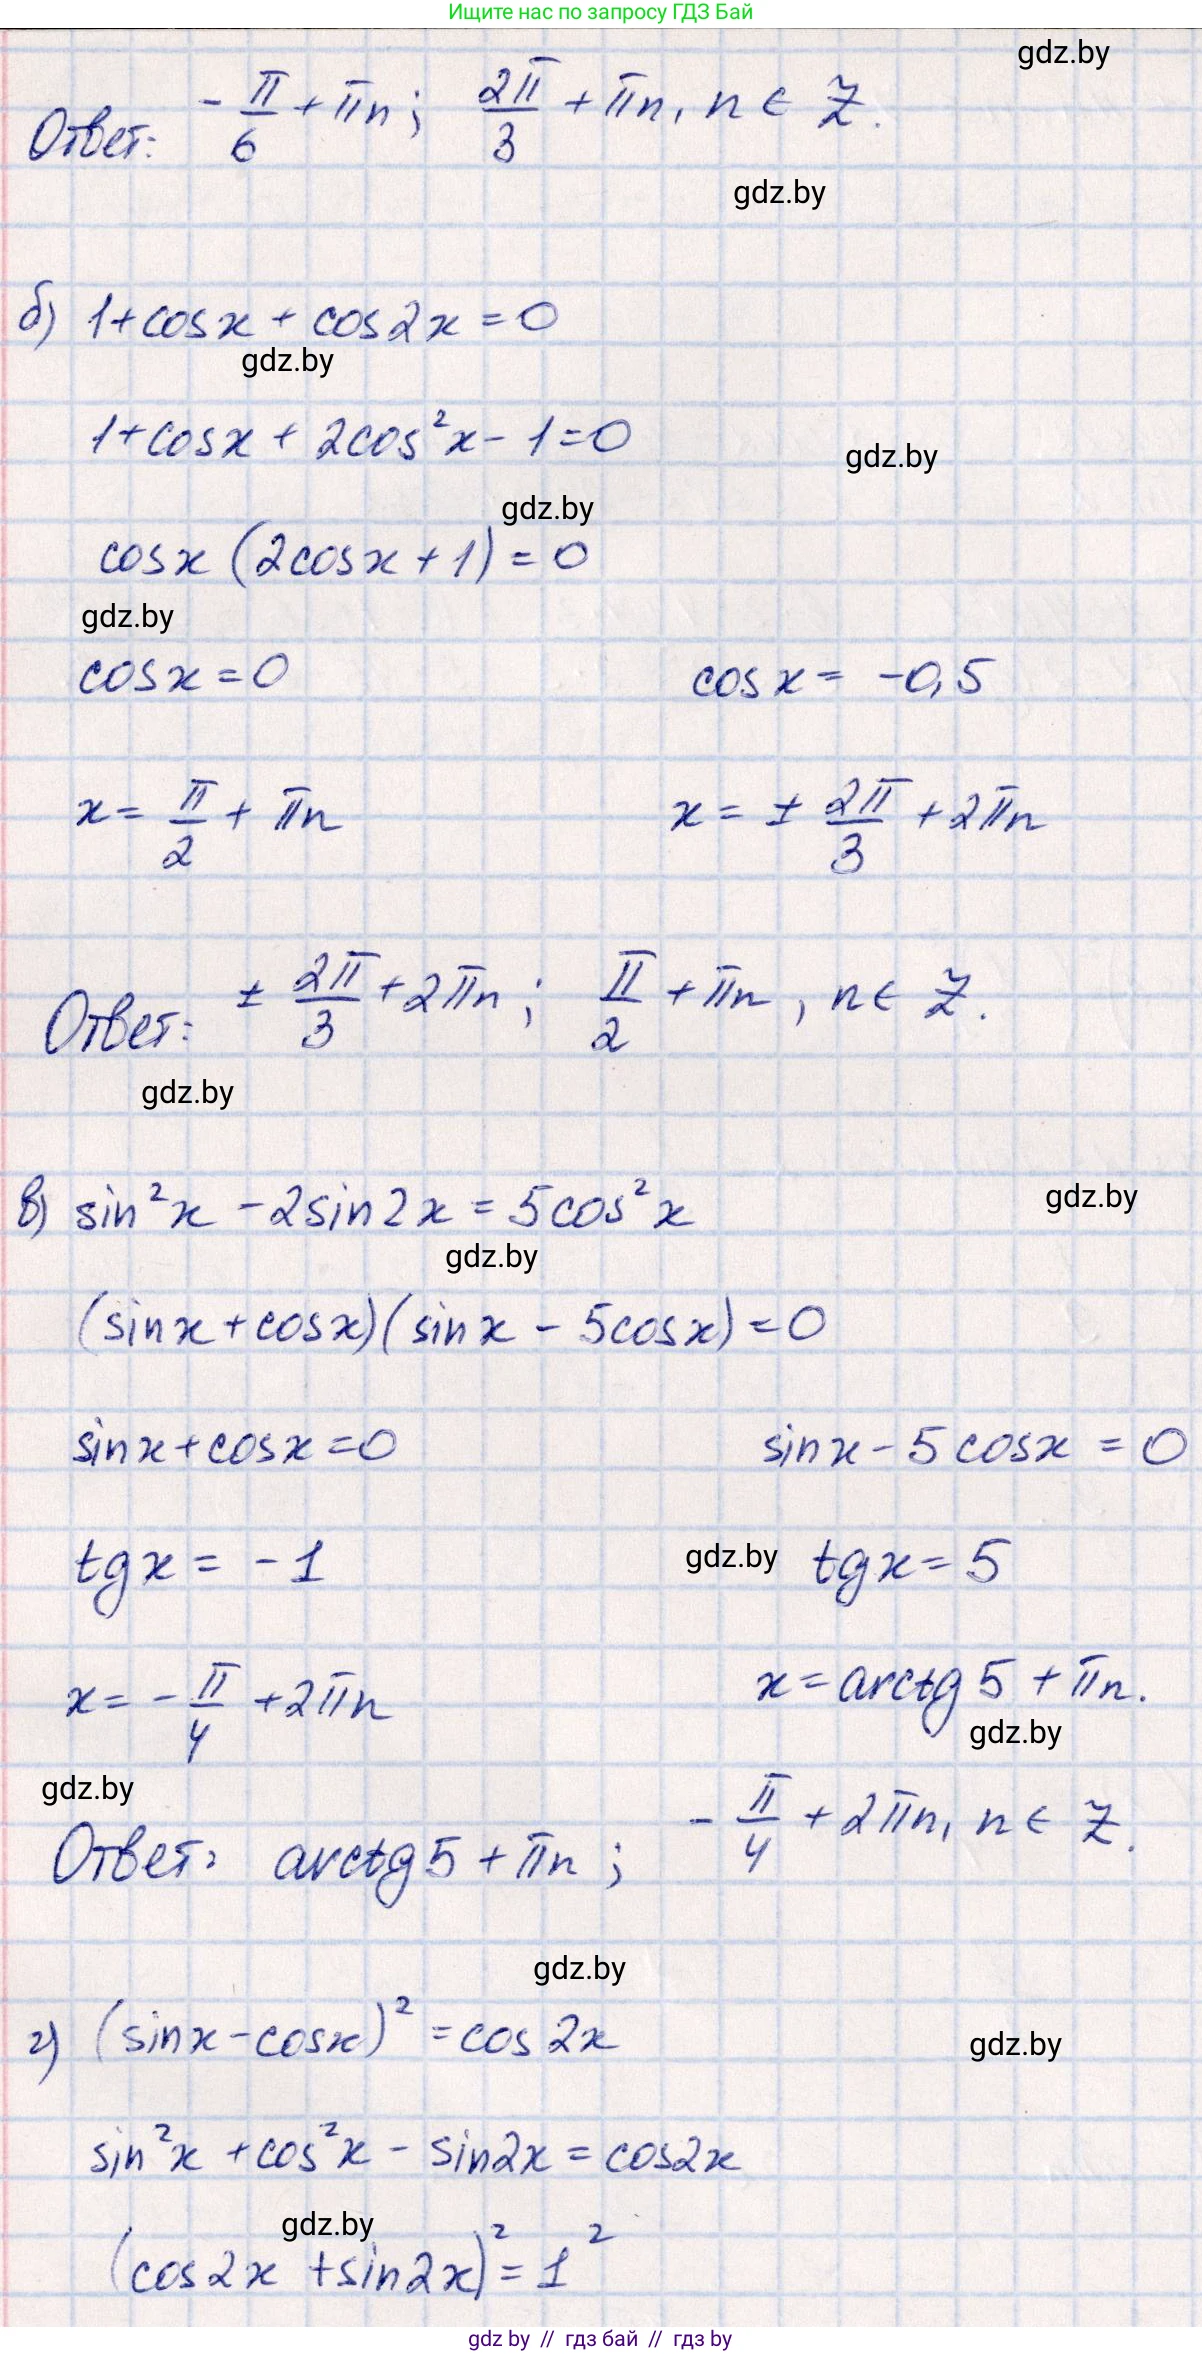 Ищите нас по запросу ГДЗ Бай
gdz.by
Ответ: -π/6 + πn; 2π/3 + πn, n ∈ Z.
gdz.by
б) 1+cosx + cos2x = 0
gdz.by
1+cosx + 2cos²x - 1 = 0
gdz.by
gdz.by
cosx (2cosx + 1) = 0
gdz.by
cosx = 0 cosx = -0,5
x = π/2 + πn x = ± 2π/3 + 2πn
Ответ: ± 2π/3 + 2πn; π/2 + πn, n ∈ Z.
gdz.by
в) sin²x - 2sin2x = 5cos²x
gdz.by
gdz.by
(sinx + cosx)(sinx - 5cosx) = 0
sinx + cosx = 0 sinx - 5cosx = 0
tgx = -1 gdz.by tgx = 5
x = -π/4 + 2πn x = arctg5 + πn.
gdz.by
gdz.by
Ответ: arctg5 + πn; -π/4 + 2πn, n ∈ Z.
gdz.by
г) (sinx - cosx)² = cos2x
gdz.by
sin²x + cos²x - sin2x = cos2x
gdz.by
(cos2x + sin2x)² = 1²
gdz by // гдз бай // гдз by